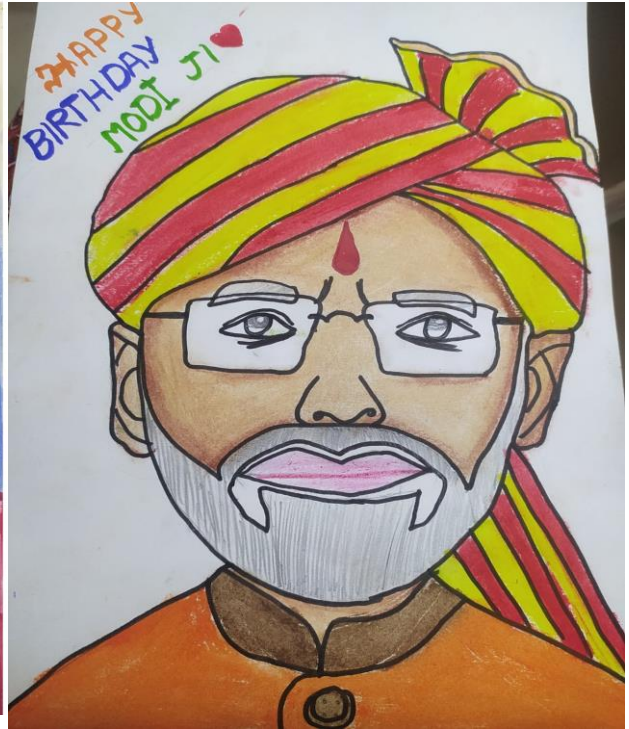 HAPPY
BIRTHDAY
MODI JI